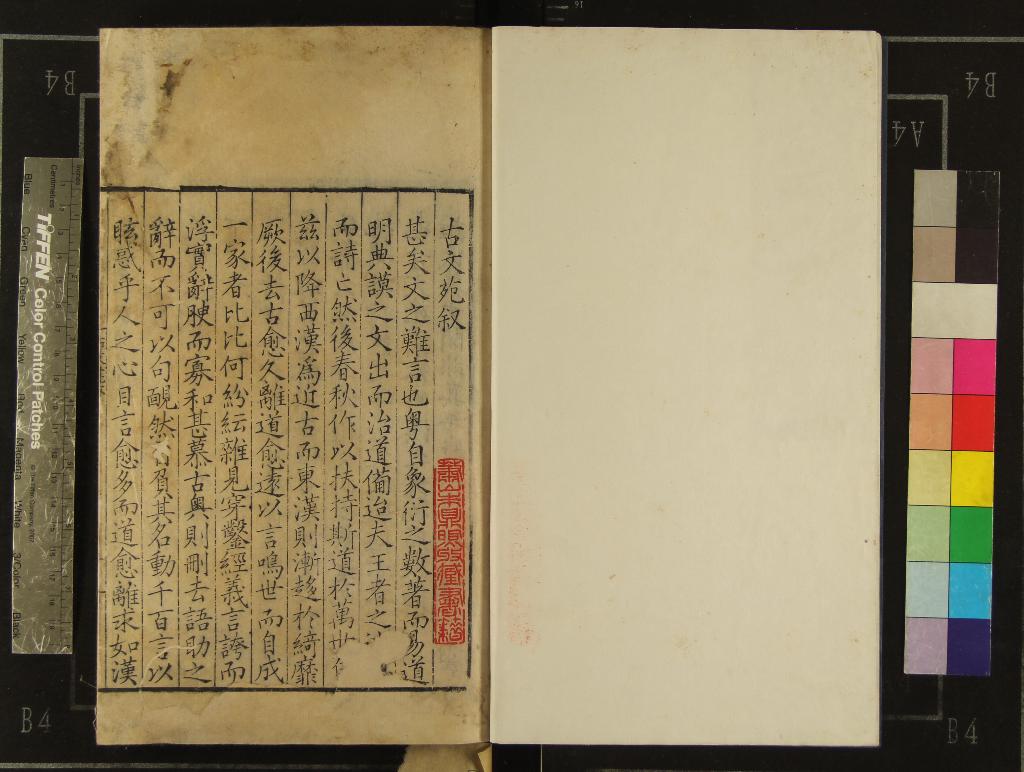 古文苑叙
甚矣文之難言也粤自象衍之數著而易道
明典謨之文出而治道備迨夫王者之
而詩亡然後春秋作以扶持斯道於萬世
兹以降西漢爲近古而東漢則漸趍於綺靡
厥後去古愈久離道愈遠以言鳴世而自成
一家者比比何紛紜雜見穿鑿經義言誇而
浮實辭腴而寡和甚慕古輿則刪去語助之
辭而不可以句靦然自負其名動千百言以
眩惑乎人之心目言愈多而道愈離求如漢
B4
B4
A4
B4
B4
TIFFEN Color Control Patches
Centimetres
Inches
Blue
Cyan
Green
Yellow
Red
Magenta
White
3/Color
Black